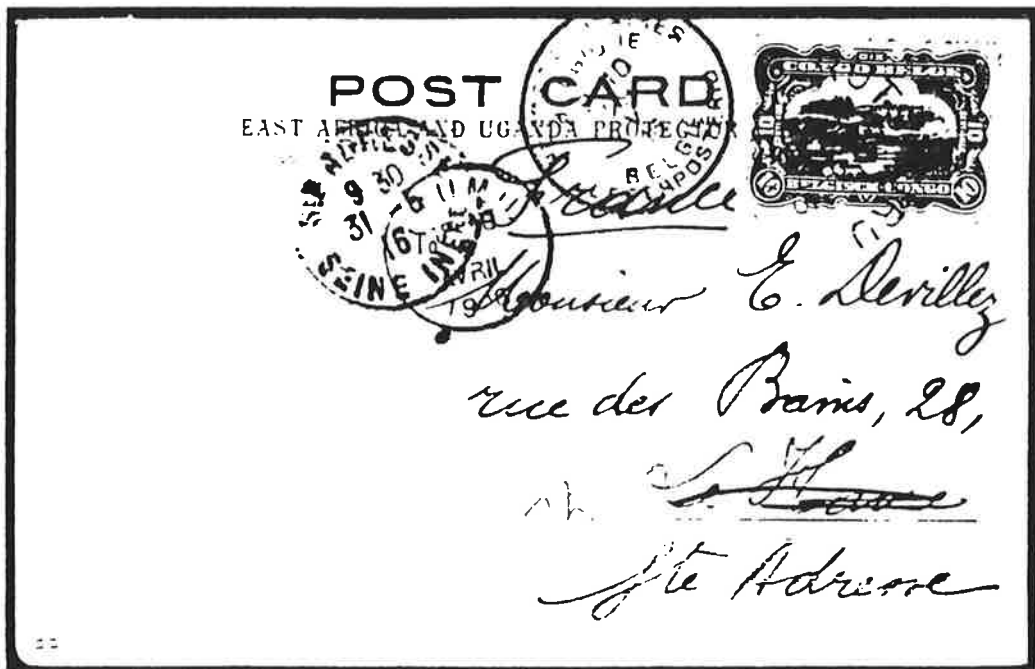 POST CARD
EAST AFRICA AND UGANDA PROTECTOR
CONGO BELGE
10 10
10 10
BELGISCH-CONGO
STE ADRESSE
9 30
31
SEINE INF
AVRIL
19
BELGE
POSTES
France
Monsieur E. Devillez
rue des Bains, 28,
Le Havre
Ste Adresse